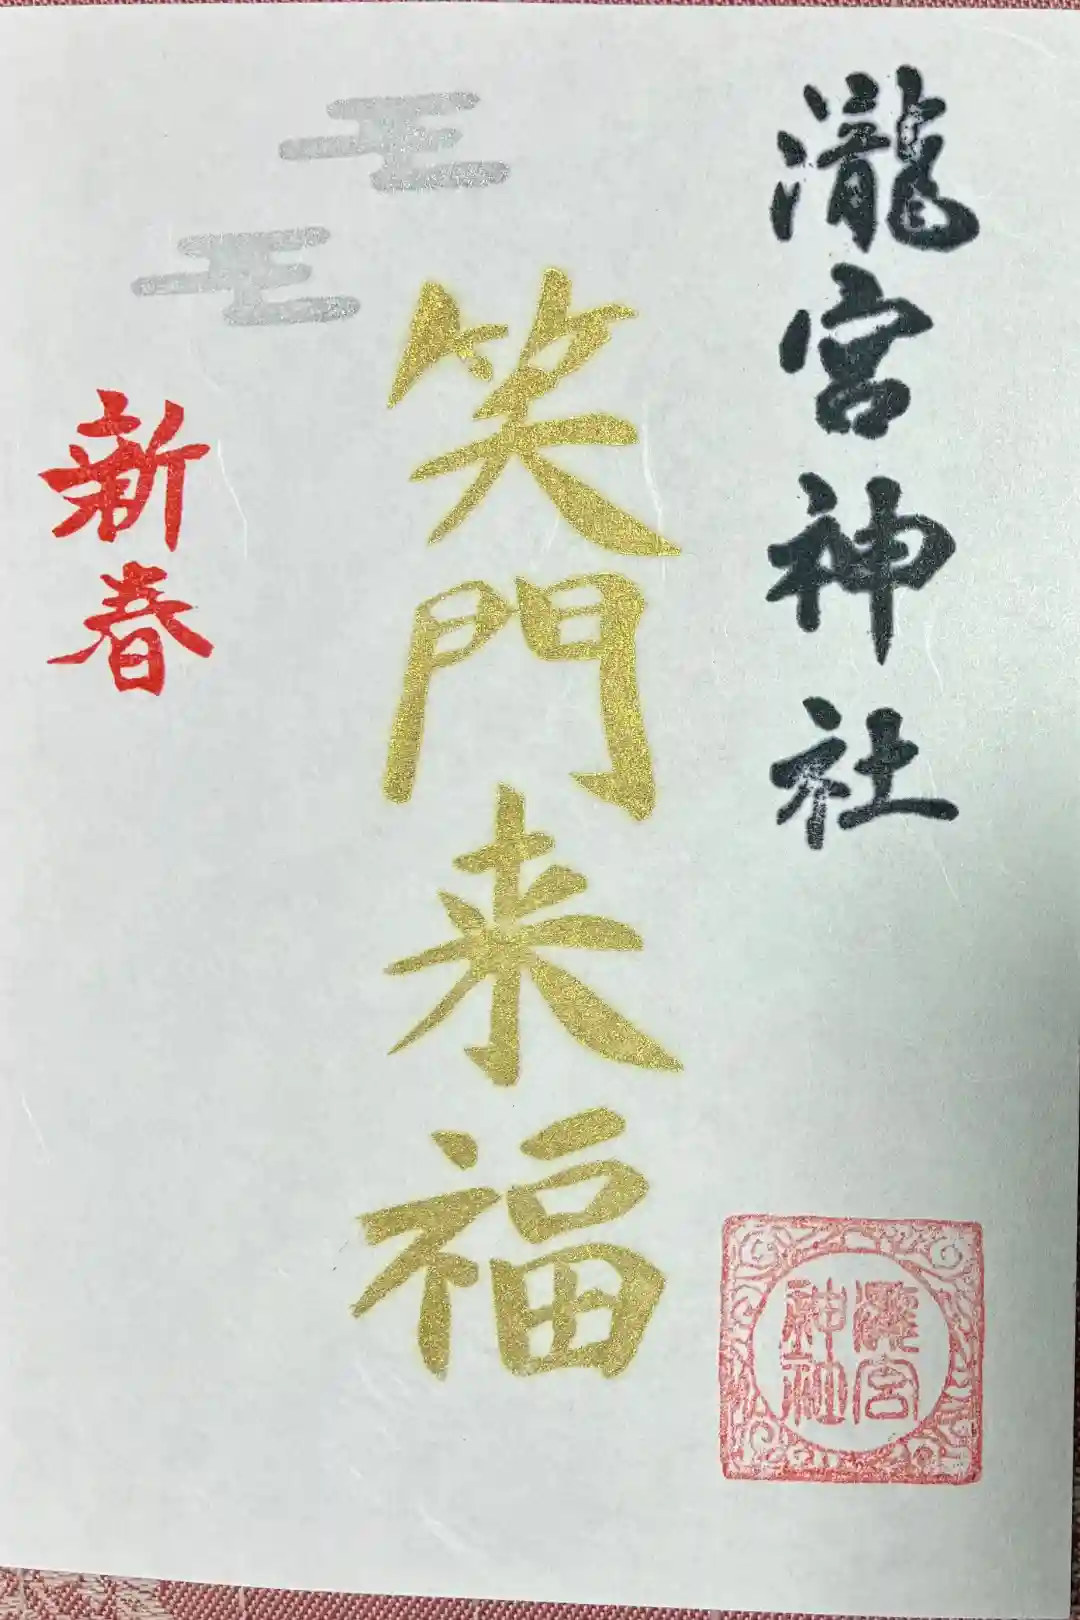 瀧宮神社
笑門来福
新春
瀧宮
神社